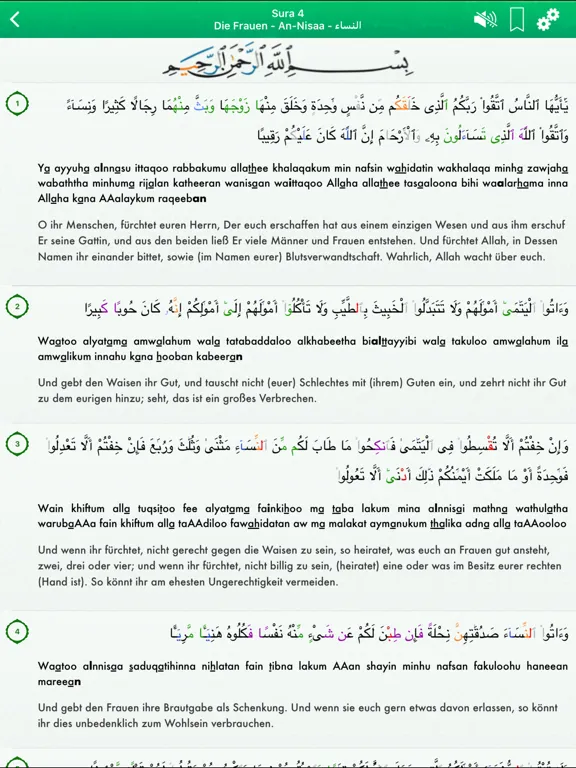 Sura 4
Die Frauen - An-Nisaa - النساء
بِسْمِ اللَّهِ الرَّحْمَٰنِ الرَّحِيمِ
1
يَٰٓأَيُّهَا ٱلنَّاسُ ٱتَّقُوا۟ رَبَّكُمُ ٱلَّذِى خَلَقَكُم مِّن نَّفْسٍ وَٰحِدَةٍ وَخَلَقَ مِنْهَا زَوْجَهَا وَبَثَّ مِنْهُمَا رِجَالًا كَثِيرًا وَنِسَآءً
وَٱتَّقُوا۟ ٱللَّهَ ٱلَّذِى تَسَآءَلُونَ بِهِۦ وَٱلْأَرْحَامَ إِنَّ ٱللَّهَ كَانَ عَلَيْكُمْ رَقِيبًا
Ya ayyuha alnnasu ittaqoo rabbakumu allathee khalaqakum min nafsin wahidatin wakhalaqa minha zawjaha
wabaththa minhuma rijalan katheeran wanisaan waittaqoo Allaha allathee tasaaloona bihi waalarhama inna
Allaha kana AAalaykum raqeeban
O ihr Menschen, fürchtet euren Herrn, Der euch erschaffen hat aus einem einzigen Wesen und aus ihm erschuf
Er seine Gattin, und aus den beiden ließ Er viele Männer und Frauen entstehen. Und fürchtet Allah, in Dessen
Namen ihr einander bittet, sowie (im Namen eurer) Blutsverwandtschaft. Wahrlich, Allah wacht über euch.
2
وَءَاتُوا۟ ٱلْيَتَٰمَىٰٓ أَمْوَٰلَهُمْ وَلَا تَتَبَدَّلُوا۟ ٱلْخَبِيثَ بِٱلطَّيِّبِ وَلَا تَأْكُلُوٓا۟ أَمْوَٰلَهُمْ إِلَىٰٓ أَمْوَٰلِكُمْ إِنَّهُۥ كَانَ حُوبًا كَبِيرًا
Waatoo alyatama amwalahum wala tatabaddaloo alkhabeetha bialttayyibi wala takuloo amwalahum ila
amwalikum innahu kana hooban kabeeran
Und gebt den Waisen ihr Gut, und tauscht nicht (euer) Schlechtes mit (ihrem) Guten ein, und zehrt nicht ihr Gut
zu dem eurigen hinzu; seht, das ist ein großes Verbrechen.
3
وَإِنْ خِفْتُمْ أَلَّا تُقْسِطُوا۟ فِى ٱلْيَتَٰمَىٰ فَٱنكِحُوا۟ مَا طَابَ لَكُم مِّنَ ٱلنِّسَآءِ مَثْنَىٰ وَثُلَٰثَ وَرُبَٰعَ فَإِنْ خِفْتُمْ أَلَّا تَعْدِلُوا۟
فَوَٰحِدَةً أَوْ مَا مَلَكَتْ أَيْمَٰنُكُمْ ذَٰلِكَ أَدْنَىٰٓ أَلَّا تَعُولُوا۟
Wain khiftum alla tuqsitoo fee alyatama fainkihoo ma taba lakum mina alnnisai mathna wathulatha
warubaAAa fain khiftum alla taAAdiloo fawahidatan aw ma malakat aymanukum thalika adna alla taAAooloo
Und wenn ihr fürchtet, nicht gerecht gegen die Waisen zu sein, so heiratet, was euch an Frauen gut ansteht,
zwei, drei oder vier; und wenn ihr fürchtet, nicht billig zu sein, (heiratet) eine oder was im Besitz eurer rechten
(Hand ist). So könnt ihr am ehesten Ungerechtigkeit vermeiden.
4
وَءَاتُوا۟ ٱلنِّسَآءَ صَدُقَٰتِهِنَّ نِحْلَةً فَإِن طِبْنَ لَكُمْ عَن شَىْءٍ مِّنْهُ نَفْسًا فَكُلُوهُ هَنِيٓـًٔا مَّرِيٓـًٔا
Waatoo alnnisaa saduqatihinna nihlatan fain tibna lakum AAan shayin minhu nafsan fakuloohu haneean
mareean
Und gebt den Frauen ihre Brautgabe als Schenkung. Und wenn sie euch gern etwas davon erlassen, so könnt
ihr dies unbedenklich zum Wohlsein verbrauchen.